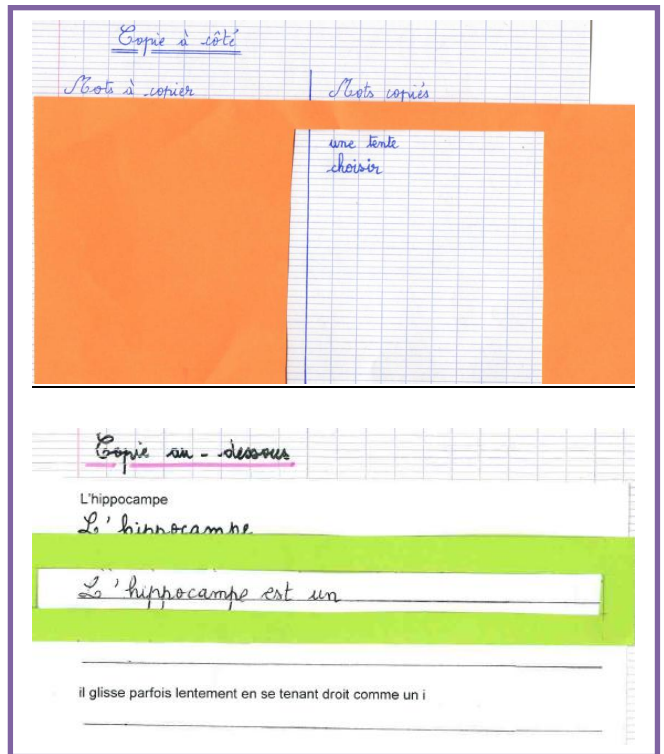 Copie à côté
Mots à copier
Mots copiés
une tente
choisir
Copie au-dessous
L'hippocampe
L'hippocampe
L'hippocampe est un
il glisse parfois lentement en se tenant droit comme un i